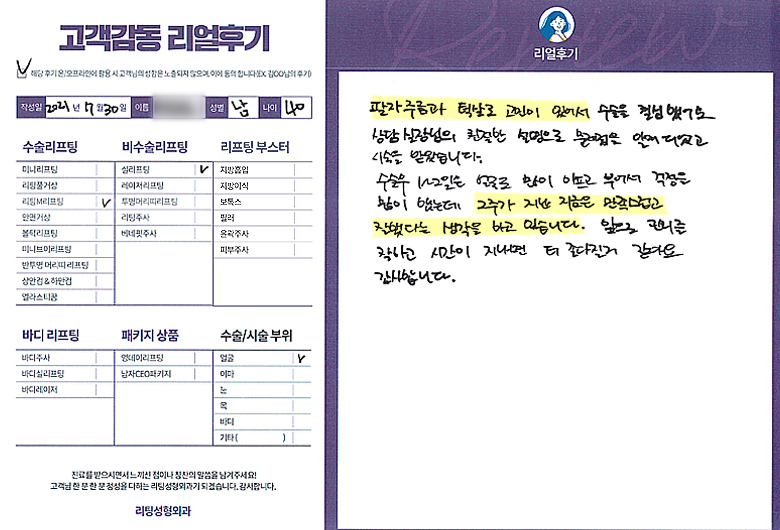 고객감동 리얼후기
해당 후기 온/오프라인에 활용 시 고객님의 성함은 노출되지 않으며, 이에 동의 합니다(EX. 김OO님의 후기)
작성일 2021년 7월 30일 이름 성별 남 나이 40
수술리프팅 비수술리프팅 리프팅 부스터
미니리프팅 실리프팅 ✓ 지방흡입
리팅풀거상 레이저리프팅 지방이식
리팅M리프팅 ✓ 투명머리띠리프팅 보톡스
안면거상 리팅주사 필러
볼턱리프팅 베네핏주사 윤곽주사
미니브이리프팅 피부주사
반투명 머리띠 리프팅
상안검 & 하안검
엘라스티꿈
바디 리프팅 패키지 상품 수술/시술 부위
바디주사 영데이리프팅 얼굴 ✓
바디실리프팅 남자CEO패키지 이마
바디레이저 눈
목
바디
기타 ( )
진료를 받으시면서 느끼신 점이나 칭찬의 말씀을 남겨주세요!
고객님 한 분 한 분 정성을 다하는 리팅성형외과가 되겠습니다. 감사합니다.
리팅성형외과
Review
리얼후기
팔자주름과 턱살로 고민이 있어서 수술을 결심 했어요
상담실장님의 친절한 설명으로 궁금점을
시술을 받았습니다.
수술후 1~2일은 얼굴도 많이 아프고 부어서 걱정은
많이 했는데 2주가 지난 지금은 만족스럽고
잘했다는 생각을 하고 있습니다. 앞으로 관리를
잘하고 시간이 지나면 더 좋아질거 같아요
감사합니다.